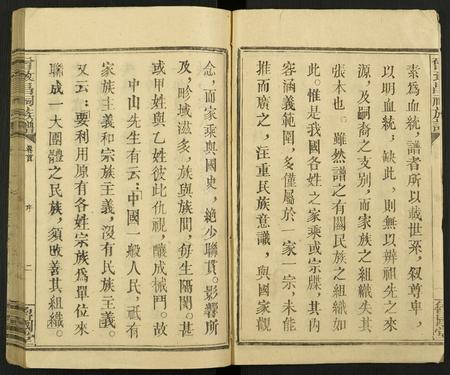 素爲血統，譜者所以載世系，叙尊卑，
以明血統；缺此，則無以辨祖先之來
源，及嗣裔之支别，而家族之組織失其
張本也。雖然譜之有關民族之組織如
此。惟是我國各姓之家乘或宗牒，其内
容涵義範圍，多僅屬於一家一宗，未能
推而廣之，注重民族意識，與國家觀
念，而家乘與國史，絶少聯貫。影響所
及，畛域滋多，族與族間，每生隔閡。甚
或甲姓與乙姓彼此仇視，釀成械鬥。故
中山先生有云：中國一般人民，祗有
家族主義和宗族主義，没有民族主義。
又云：要利用原有各姓宗族爲單位來
聯成一大團體之民族，須改善其組織。
卷首
序
二